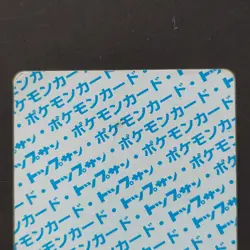 ポケモンカード・トップサン・
ポケモンカード・トップサン・
ポケモンカード・トップサン・
ポケモンカード・トップサン・
ポケモンカード・トップサン・
ポケモンカード・トップサン・